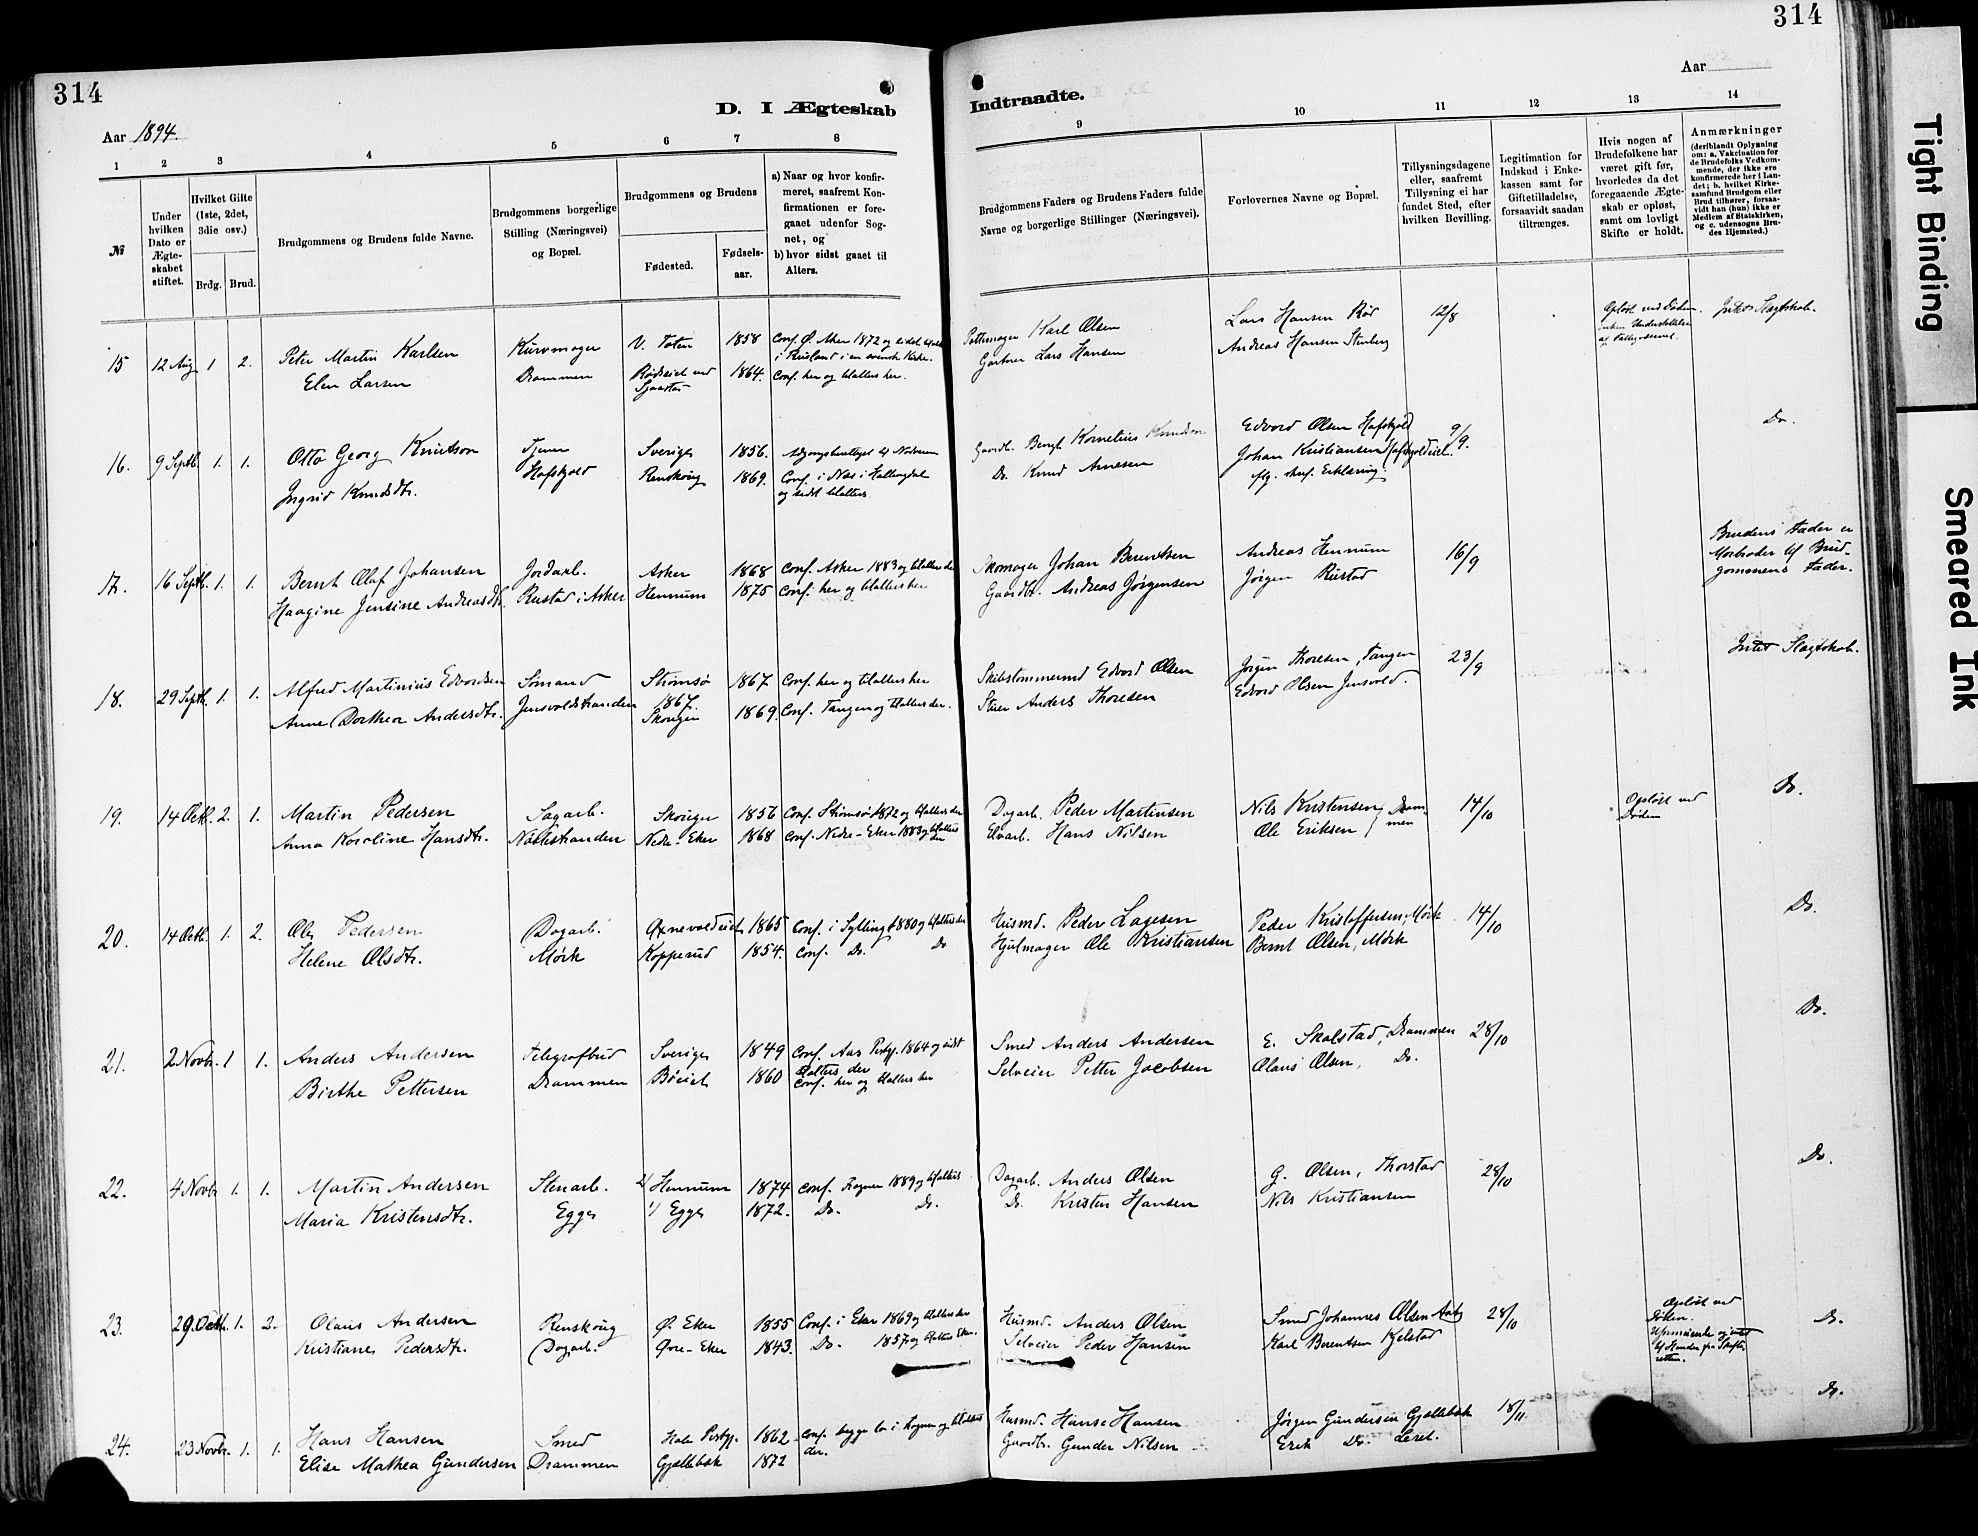 314
314
D. I Ægteskab
Indtraadte.
Aar 1894.
Aar
1 2 3 4 5 6 7 8 9 10 11 12 13 14
№
Under hvilken Dato er Ægteskabet stiftet.
Hvilket Gifte (1ste, 2det, 3die osv.)
Brdg. Brud.
Brudgommens og Brudens fulde Navne.
Brudgommens borgerlige Stilling (Næringsvei) og Bopæl.
Brudgommens og Brudens
Fødested.
Fødsels-aar.
a) Naar og hvor konfirmeret, saafremt Konfirmationen er foregaaet udenfor Sognet, og
b) hvor sidst gaaet til Alters.
Brudgommens Faders og Brudens Faders fulde Navne og borgerlige Stillinger (Næringsvei).
Forlovernes Navne og Bopæl.
Tillysningsdagene eller, saafremt Tillysning ei har fundet Sted, efter hvilken Bevilling.
Legitimation for Indskud i Enkekassen samt for Giftetilladelse, forsaavidt saadan tiltrænges.
Hvis nogen af Brudefolkene har været gift før, hvorledes da det foregaaende Ægteskab er opløst, samt om lovligt Skifte er holdt.
Anmærkninger (deriblandt Oplysning om: a. Vakcination for de Brudefolks Vedkommende, der ikke ere konfirmerede her i Landet; b. hvilket Kirkesamfund Brudgom eller Brud tilhører, forsaavidt han (hun) ikke er Medlem af Statskirken, og c. udensogns Brudes Hjemsted.)
15 12 Aug 1 2. Peter Martin Karlsen Kurvmager V. Toten 1858 Conf. Ø. Aker 1872 og sidst til alters i Rusland i en svensk Kirke. Pottemager Karl Olsen Lars Hansen Rød 12/8 Opløst ved Døden. Intet Slagtskab.
Elen Larsen Drammen 1864. Conf. her og til alters her. Gartner Lars Hansen Andreas Hansen Stenberg
16. 9 Septb. 1. 1. Otto Georg Knutson Tjener Sverige 1856. Gaardb. Bengt Kornelius Knudsen Edvard Olsen Hafskjold 9/9. Do.
Ingrid Knudsdtr. Hafskjold Renskoug 1869. Conf. i Næs i Hallingdal og sidst til alters. Do. Knud Arnesen Johan Kristiansen Hafskjoldeiet.
17. 16 Septb. 1. 1. Bernt Olaf Johansen Jordarb. Asker 1868 Conf. Asker 1883 og til alters der Skomager Johan Berentsen Andreas Hennum 16/9 Brudens Fader er Morbroder til Brudgommens Fader.
Haagine Jensine Andreasdtr. Rustad i Asker Hennum 1875 Conf. her og til alters her Gaardbr. Andreas Jörgensen Jörgen Rustad
18. 29 Septb. 1. 1. Alfred Martinius Edvardsen Sömand Strömsö 1867 Conf. her og til alters her Skibstömmermd Edvard Olsen Jörgen Thoresen, Tangen 23/9 Intet Slagtskab.
Anne Dorthea Andersdtr. Jensvoldstranden 1867. Skouger 1869. Conf. Tangen og til alters der. Anders Thoresen Edvard Olsen Jensvold.
19. 14 Octb. 2. 1. Martin Pedersen Sagarb. Skouger 1856 Conf. Strömsö 1872 og til alters der Dagarb. Peder Martinsen Nils Kristensen, Drammen 14/10 Opløst ved Døden Do.
Anna Karoline Hansdtr. Nøstestranden Nedre-Eker 1868 Conf. Nedre-Eker 1883 og til alters der Elvarb. Hans Nilsen Ole Eriksen
20. 14 Octb. 1. 2. Ole Pedersen Dagarb. 1865 Conf. i Sylling 1880 og til alters der Husmd. Peder Lagesen Peder Kristoffersen, Mörk 14/10 Do.
Helene Olsdtr. Mörk Kopperud 1854. Conf. Do. Do. Hjulmager Ole Kristiansen Bernt Olsen, Mörk
21. 2 Novbr. 1 1. Anders Andersen Telegrafbud Sverige 1849 Conf. Aas Pstgj. 1864 og sidst til alters der Smed Anders Andersen E. Skalstad, Drammen 28/10 Do.
Birthe Pettersen Drammen Böeiet 1860 Conf. her og til alters her Selveier Petter Jacobsen Olaus Olsen, Do.
22. 4 Novbr 1. 1. Martin Andersen Stenarb. Hennum 1874 Conf. Tranby 1889 og til alters Dagarb. Anders Olsen G. Olsen, Thorstad 28/10 Do.
Maria Kristensdtr. Egge Egge 1872. Do. Do. Do. Kristen Hansen Nils Kristiansen
23. 29. Octb. 1. 2. Olaus Andersen Renskoug Ø. Eker 1855 Conf. i Eker 1869 og til alters der Husmd. Anders Olsen Smed Johannes Olsen 28/10 Opløst ved Döden. Do.
Kristiane Pedersdtr. Dagarb. Övre-Eker 1843. Do. 1857 og til alters Eker. Selveier Peder Hansen Karl Berentsen Kjelstad
24. 23 Novbr. 1. 1. Hans Hansen Smed Hole Pstgj. 1862 Conf. begge to i og til alters der. Husmd. Hans Hansen Jörgen Gundersen Gjellebæk 18/11 Do.
Elise Mathea Gundersen Drammen Gjellebæk 1872 Gaardbr. Gunder Nilsen Erik Do. Leret.
Tight Binding
Smeared Ink